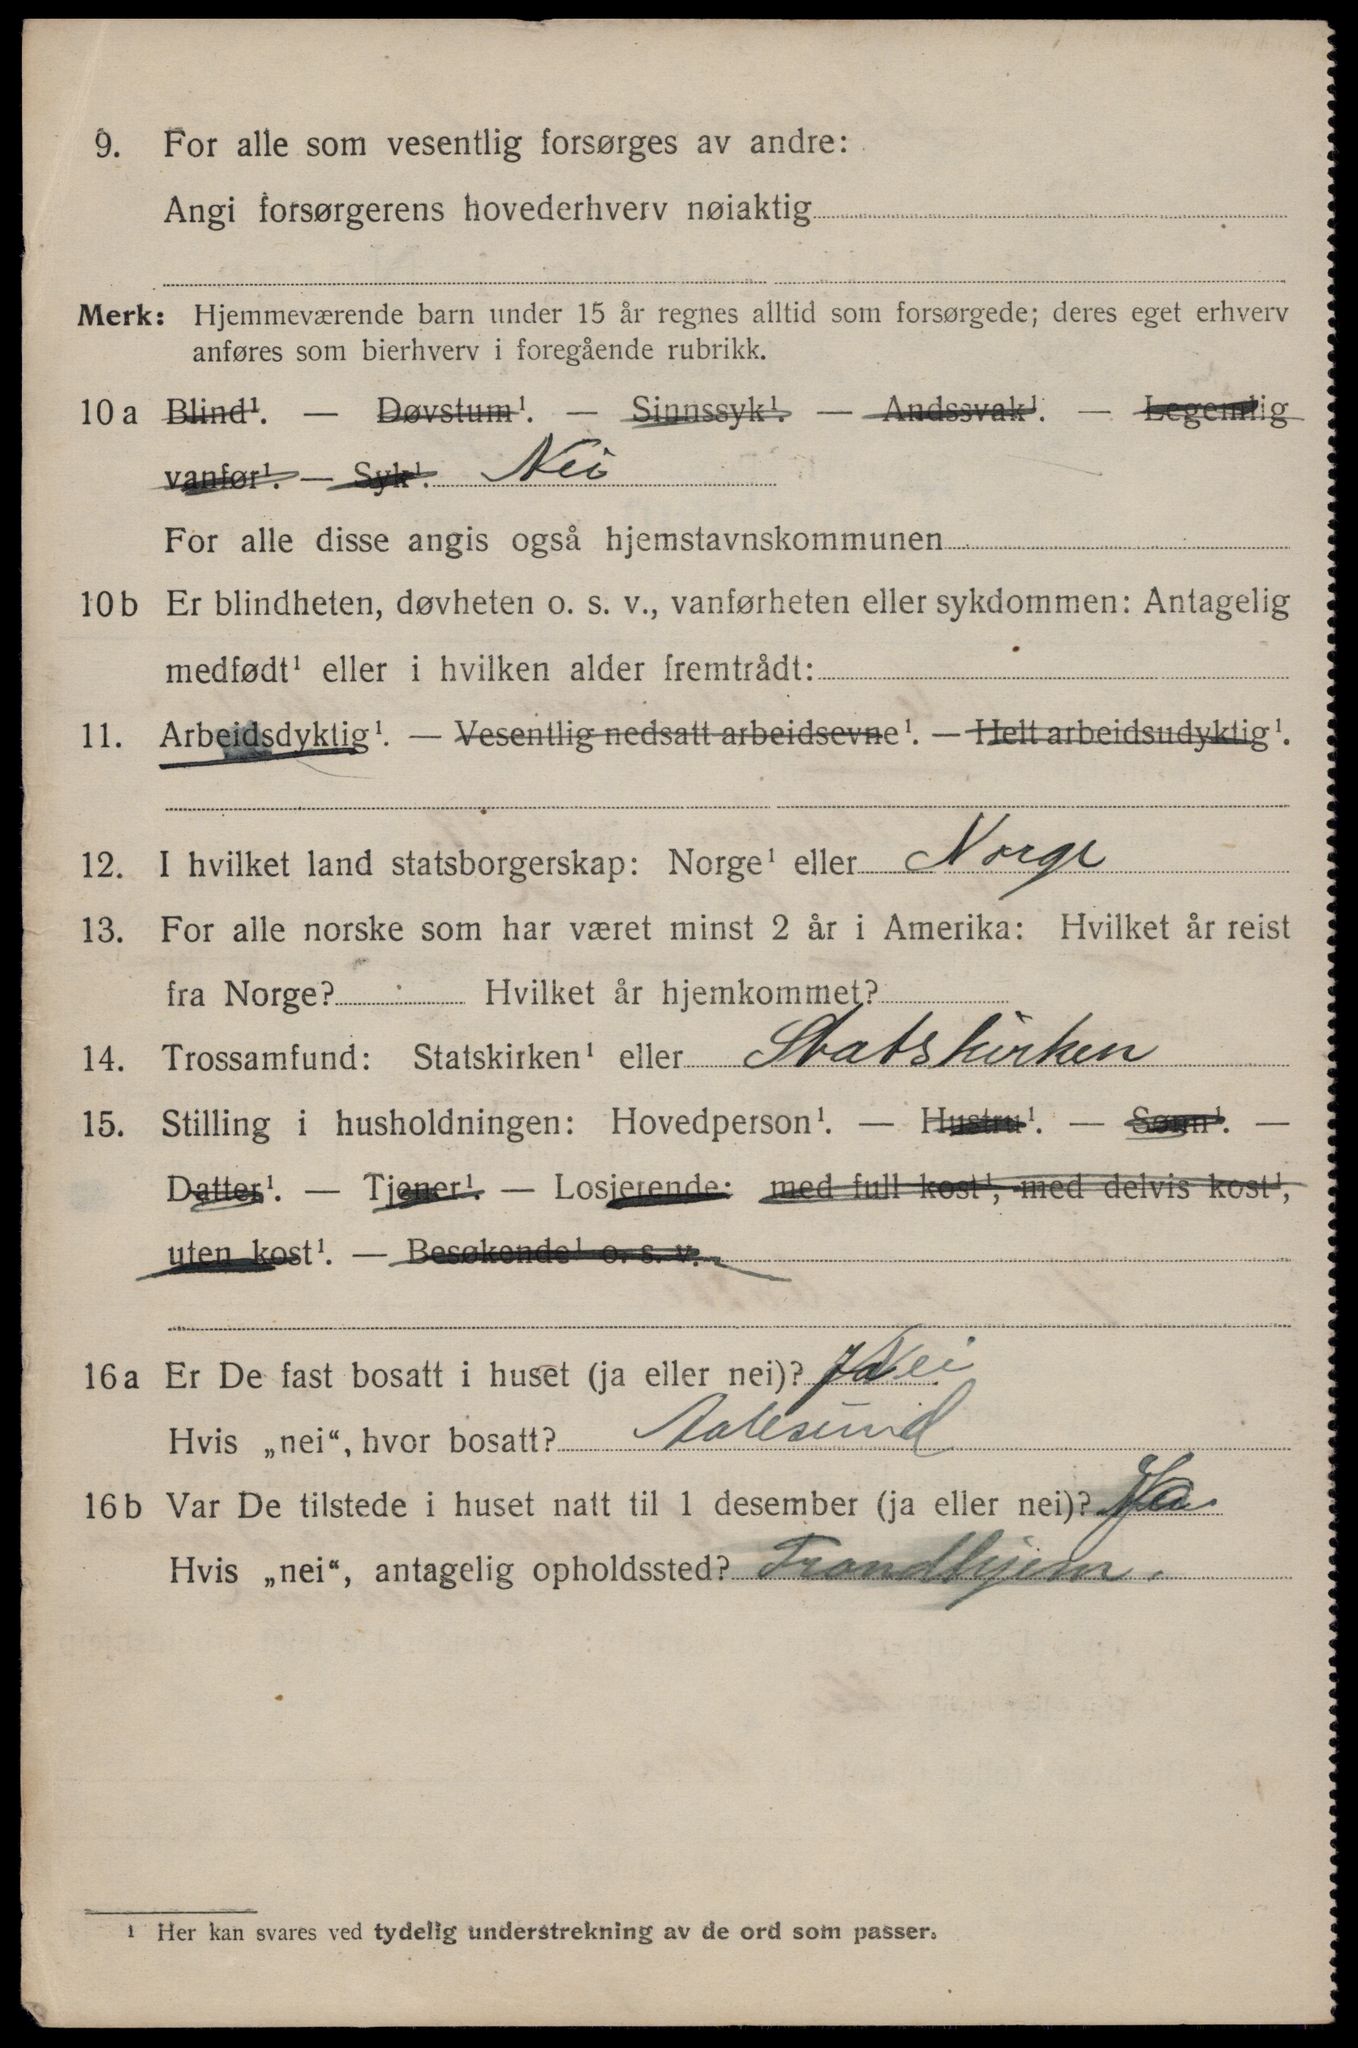 9. For alle som vesentlig forsørges av andre:
Angi forsørgerens hovederhverv nøiaktig
Merk: Hjemmeværende barn under 15 år regnes alltid som forsørgede; deres eget erhverv
anføres som bierhverv i foregående rubrikk.
10 a Blind¹. — Døvstum¹. — Sinnssyk¹. — Andssvak¹. — Legemlig
vanfør¹. — Syk¹. Nei
For alle disse angis også hjemstavnskommunen
10 b Er blindheten, døvheten o. s. v., vanførheten eller sykdommen: Antagelig
medfødt¹ eller i hvilken alder fremtrådt:
11. Arbeidsdyktig¹. — Vesentlig nedsatt arbeidsevne¹. — Helt arbeidsudyktig¹.
12. I hvilket land statsborgerskap: Norge¹ eller Norge
13. For alle norske som har været minst 2 år i Amerika: Hvilket år reist
fra Norge? Hvilket år hjemkommet?
14. Trossamfund: Statskirken¹ eller Statskirken
15. Stilling i husholdningen: Hovedperson¹. — Hustru¹. — Sønn¹. —
Datter¹. — Tjener¹. — Losjerende: med full kost¹, med delvis kost¹,
uten kost¹. — Besøkende¹ o. s. v.
16 a Er De fast bosatt i huset (ja eller nei)? Ja Nei
Hvis „nei“, hvor bosatt? Aalesund
16 b Var De tilstede i huset natt til 1 desember (ja eller nei)? Ja
Hvis „nei“, antagelig opholdssted? Trondhjem.
¹ Her kan svares ved tydelig understrekning av de ord som passer.